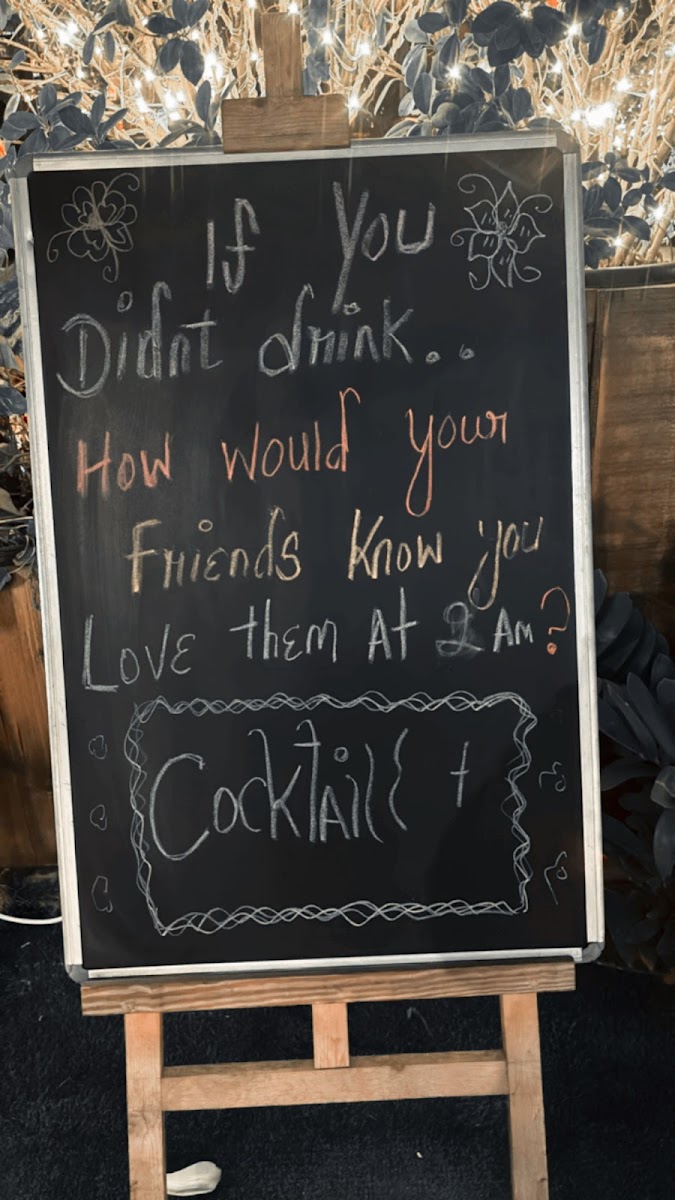 If You
Didnt drink..
How would your
friends know you
Love them At 2 AM?
Cocktails +